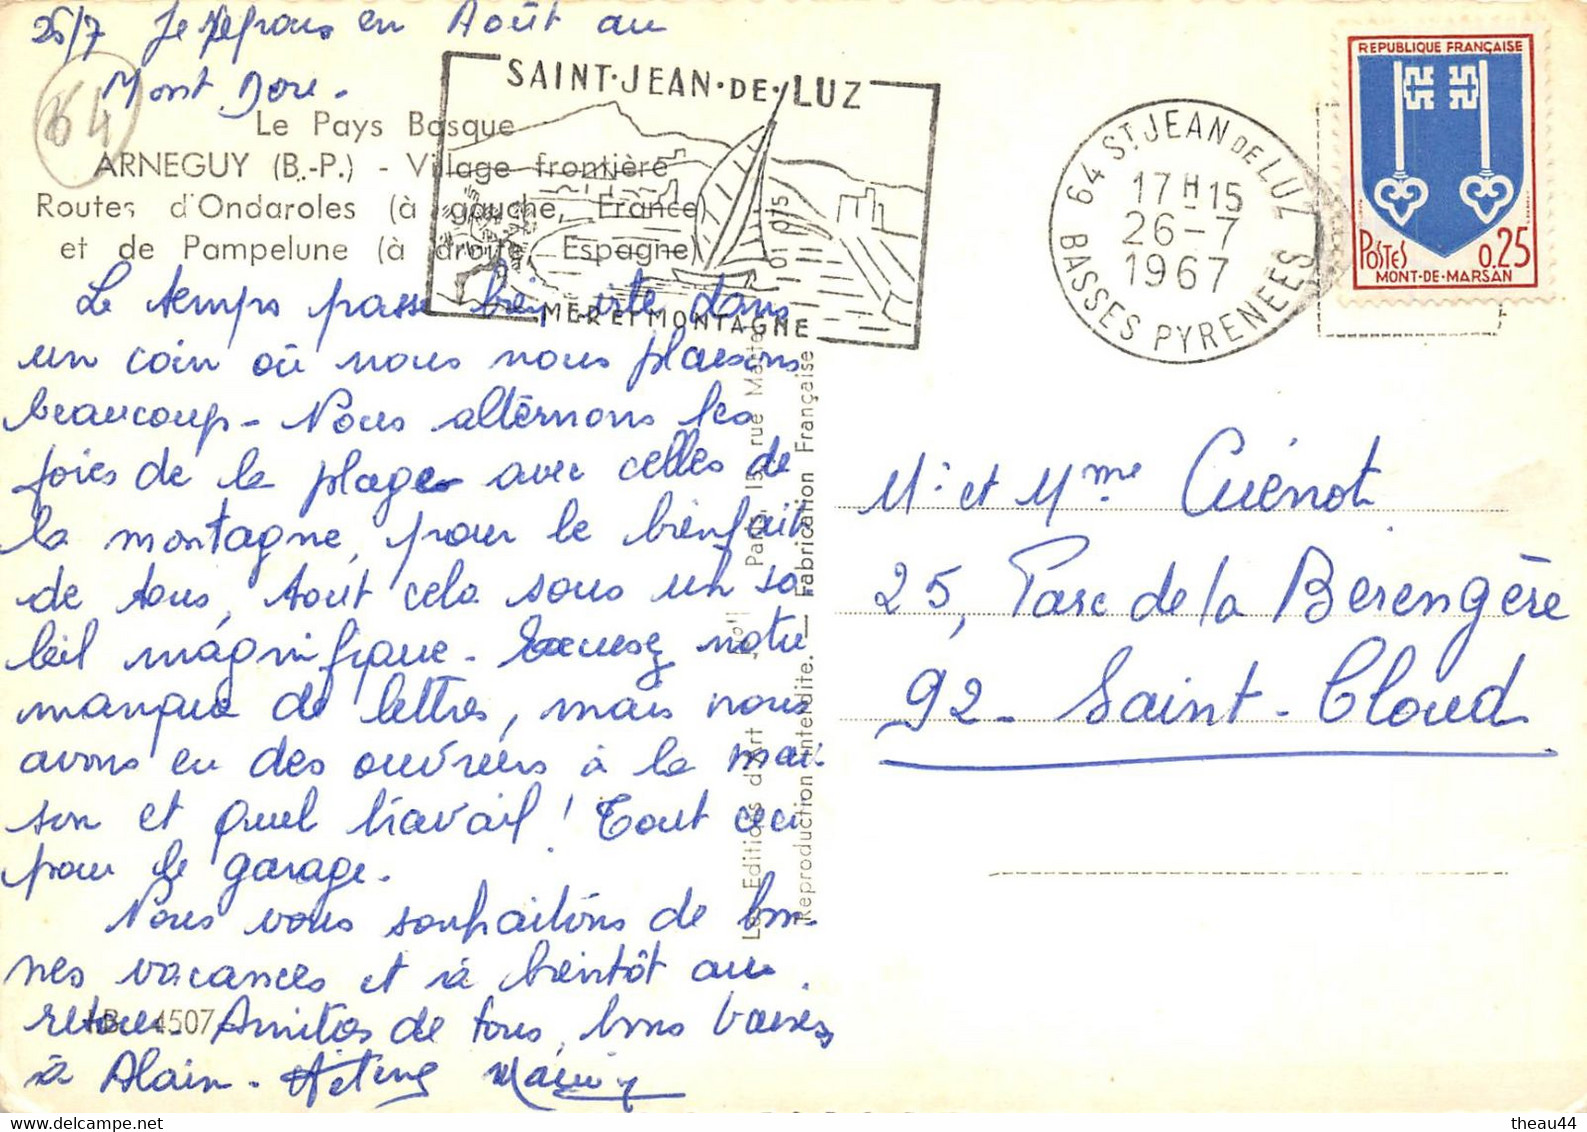 25/7 Je repars en Août au
Mont Dore -
64
Le Pays Basque
ARNEGUY (B.-P.) - Village frontière
Routes d'Ondaroles (à gauche, France)
et de Pampelune (à droite, Espagne)
SAINT·JEAN·DE·LUZ
01 075
MER ET MONTAGNE
64 ST JEAN DE LUZ
17H15
26-7
1967
BASSES PYRENEES
REPUBLIQUE FRANÇAISE
POSTES 0,25
MONT-DE-MARSAN
Le temps passe bien vite dans
un coin où nous nous plaisons
beaucoup - Nous alternons les
joies de la plage avec celles de
la montagne, pour le bienfait
de tous, tout cela sous un so
leil magnifique - Excusez notre
manque de lettres, mais nous
avons eu des ouvriers à la mai
son et quel travail ! Tout ceci
pour le garage.
Nous vous souhaitons de bon-
nes vacances et à bientôt au
retour. Amitiés de tous, bons baisers
à Alain -
AB 4507
Les Editions d'Art Paris, 15, rue
Reproduction interdite. — Fabrication Française
Mr et Mme Cuénot
25, Parc de la Berengère
92 - Saint-Cloud
theau44